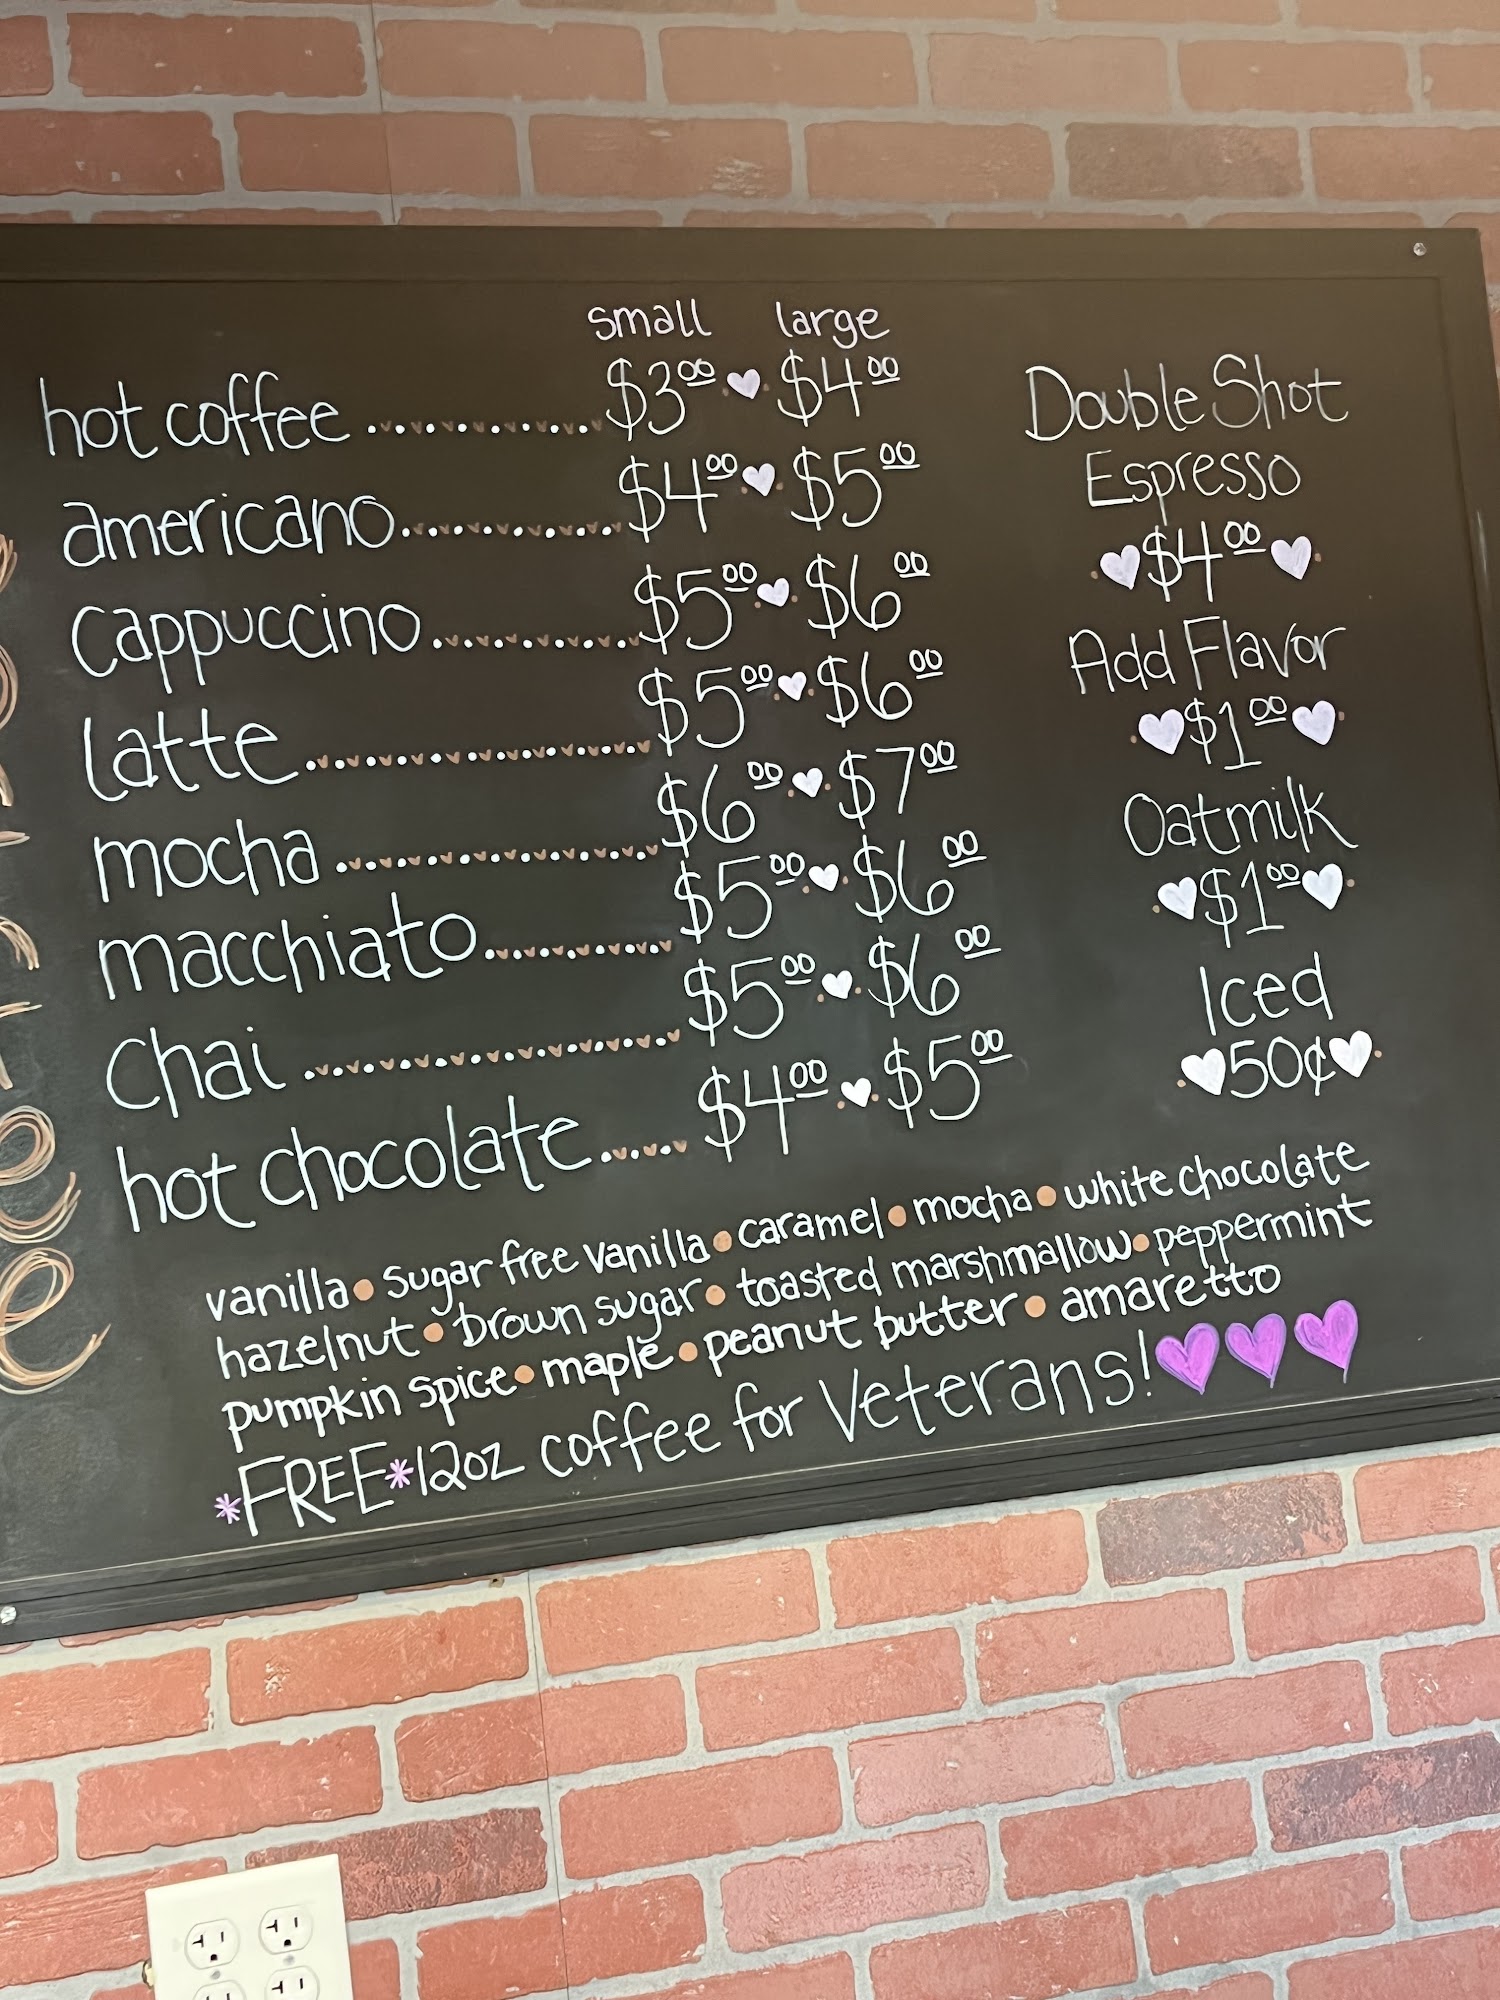 small large
hot coffee $3.00 $4.00
americano $4.00 $5.00
cappuccino $5.00 $6.00
latte $5.00 $6.00
mocha $6.00 $7.00
macchiato $5.00 $6.00
chai $5.00 $6.00
hot chocolate $4.00 $5.00
Double Shot
Espresso
$4.00
Add Flavor
$1.00
Oatmilk
$1.00
Iced
50¢
vanilla • sugar free vanilla • caramel • mocha • white chocolate
hazelnut • brown sugar • toasted marshmallow • peppermint
pumpkin spice • maple • peanut butter • amaretto
*FREE* 12oz coffee for Veterans!